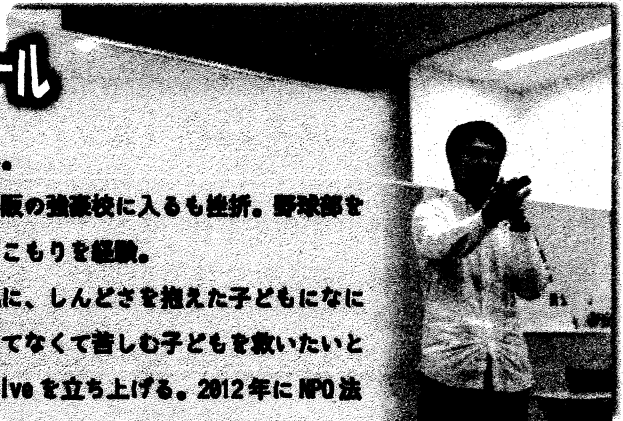 ール
。
阪の強豪校に入るも挫折。野球部を
こもりを経験。
に、しんどさを抱えた子どもになに
てなくて苦しむ子どもを救いたいと
ive を立ち上げる。2012 年に NPO 法